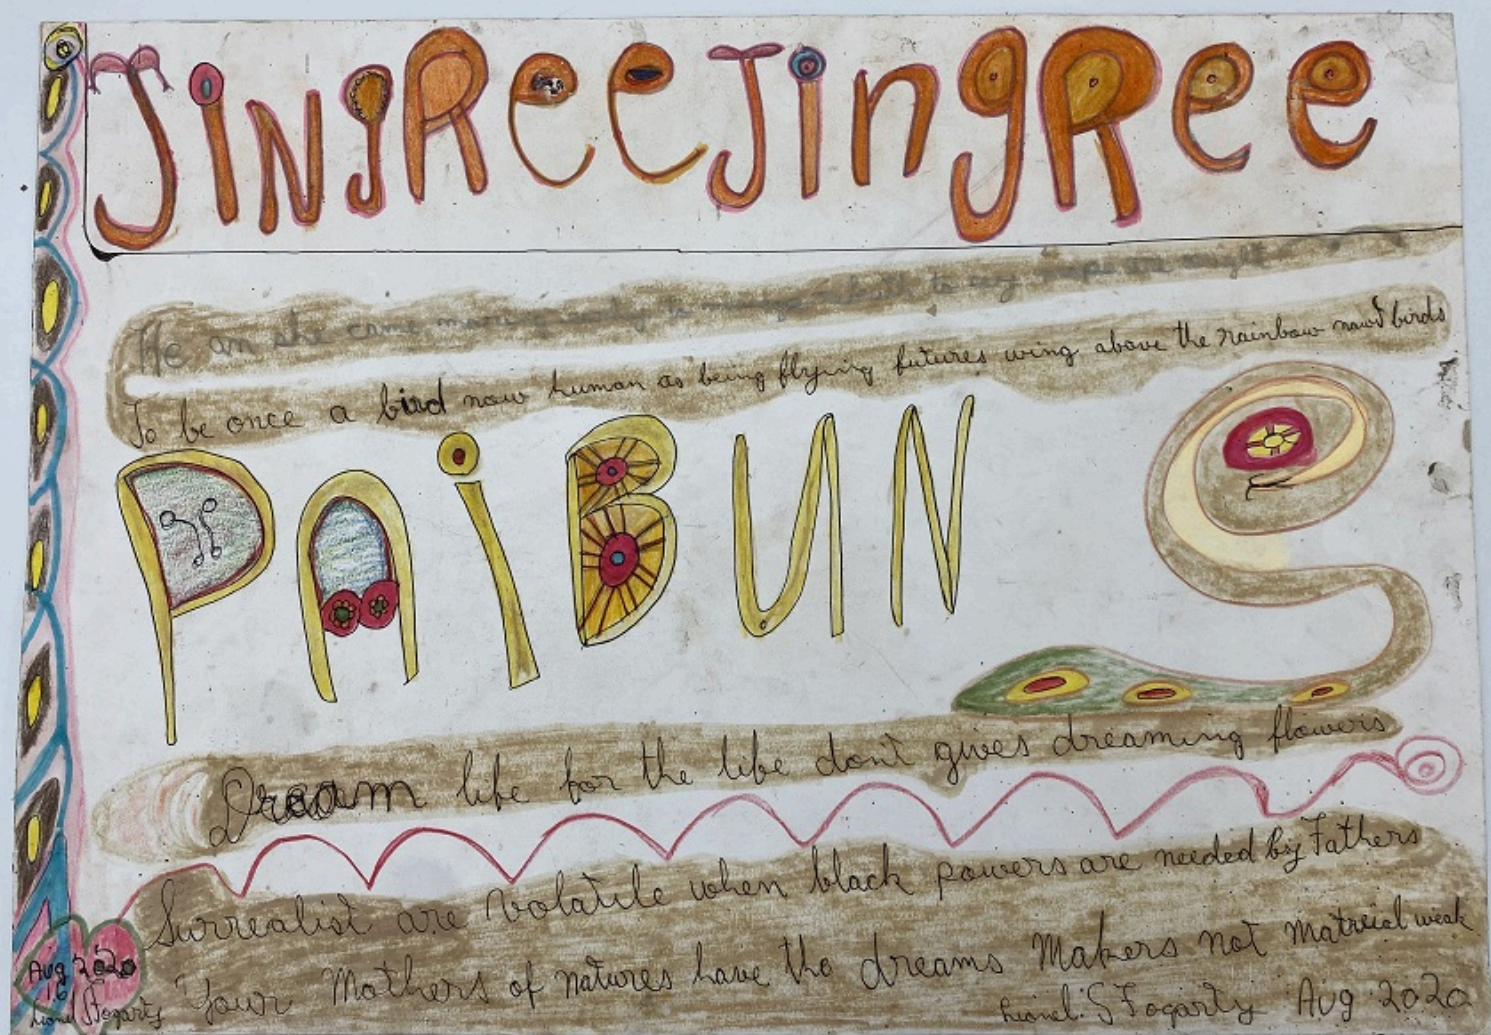 JiNgRee JingRee
He an she came
To be once a bird now human as being flying futures wing above the rainbow nawd birds
PAiBUN
Dream life for the life don't gives dreaming flowers
Surrealist are volatile when black powers are needed by Fathers
Your Mothers of natures have tho dreams Makers not matreial weak
Lionel. S Fogarty Aug 2020
Aug 2020
16
Lionel S Fogarty